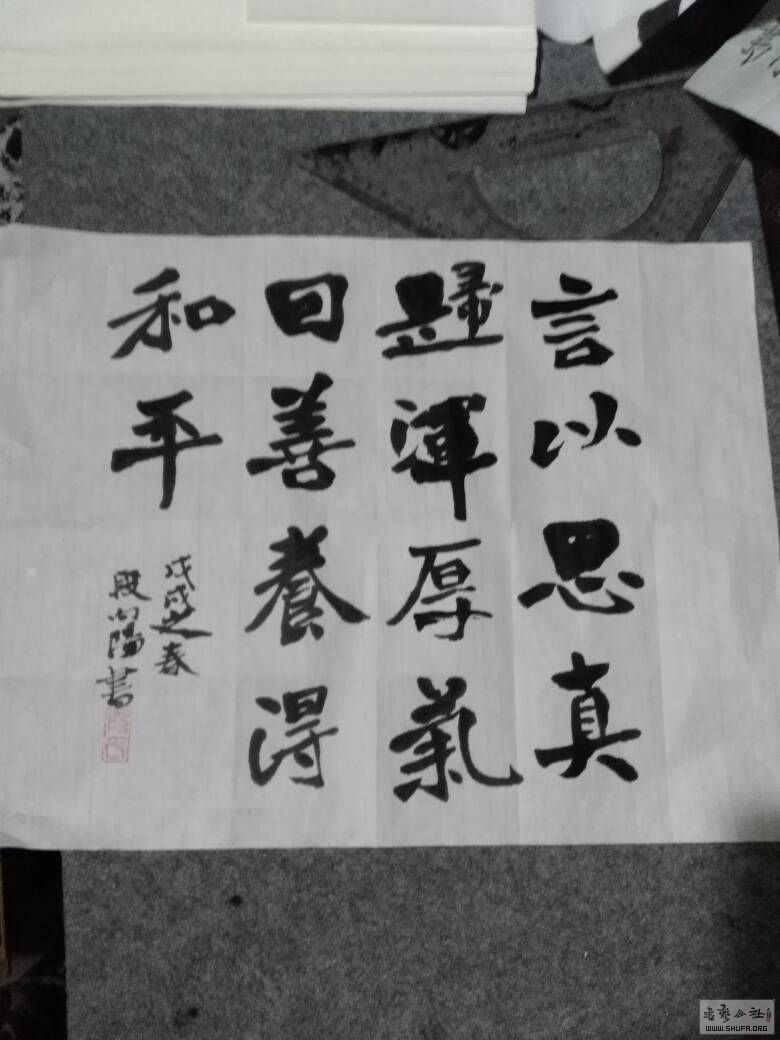 言以思真
歸渾厚氣
因善養得
和平
戊戌之春
段向陽書
書藝公社
WWW.SHUFA.ORG